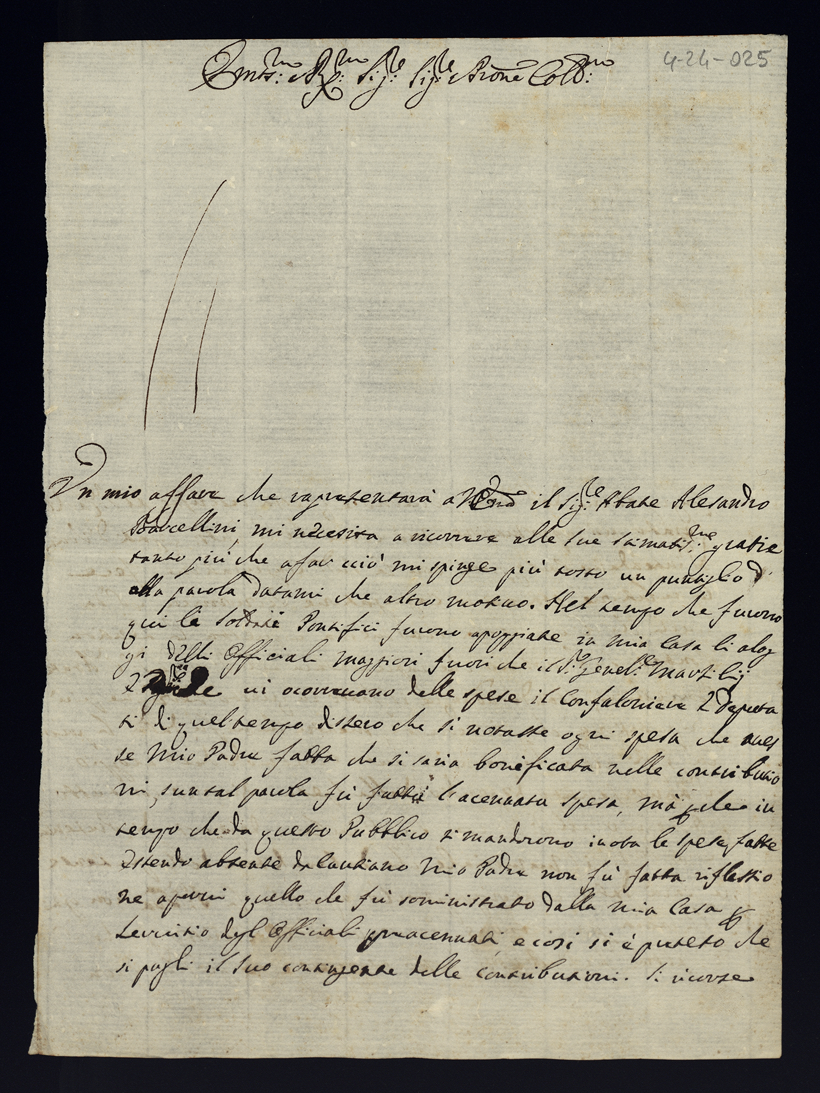 4-24-025
Emin:mo e R:mo Sig:re Sig:re e Prone Coll:mo
Un mio affare che rapresentarà a il Sig:re Abate Alesandro
Porcellini, mi necesita a ricorrere alle sue stimatis:me gratie
tanto più che a far ciò mi spinge più tosto un puntiglio d
alla parola datami che altro motivo. Nel tempo che furono
qui le soldate Pontifici furono apoggiate in mia Casa li alog
gi delli Officiali maggiori fuori che il S:r Genel:e Marsilij
vi ocorrevano delle spese il Confaloniere e deputa
ti di quel tempo dissero che si notasse ogni spesa che aves
se Mio Padre fatta che si saria bonificata nelle contributio
ni, su tal parola fù fatta l'acennata spesa, mà che in
tempo che da questo Pubblico si mandorono in nota le spese fatte
Essendo absente da Lantiano Mio Padre non fù fatta riflessio
ne a porvi quello che fù soministrato dalla mia Casa p
servitio degl'Officiali preacennati, e così si è preteso che
si paghi il suo contingente delle contributioni. Si ricorse